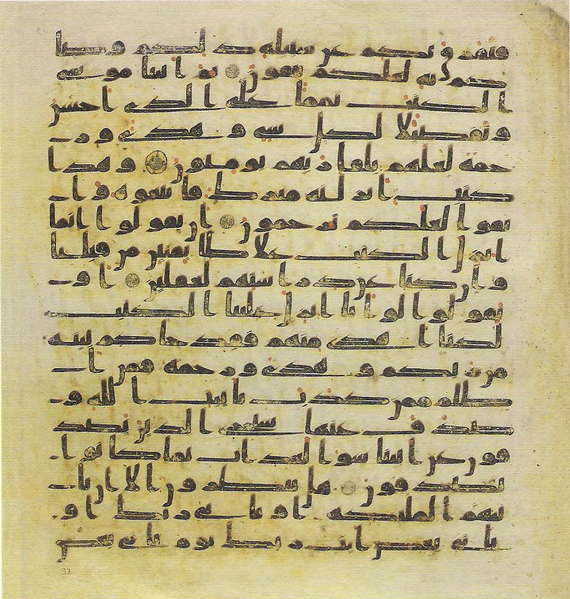 فتفرق بكم عن سبيله ذلكم وصيا
كم به لعلكم تتقون ثم اتينا موسى
الكتب تماما على الذى احسن
وتفصيلا لكل شى وهدى ور
حمة لعلهم بلقا ربهم يومنون وهذا
كتب انزلنه مبرك فاتبعوه وا
تقوا لعلكم ترحمون ان تقولوا انما
انزل الكتب على طائفتين من قبلنا
وان كنا عن دراستهم لغفلين او
تقولوا لو انا انزل علينا الكتب
لكنا اهدى منهم فقد جاكم بينة
من ربكم وهدى ورحمة فمن ا
ظلم ممن كذب بايت الله و
صدف عنها سنجزى الذين يصد
فون عن ايتنا سو العذاب بما كانوا
يصدفون هل ينظرون الا ان تا
تيهم الملئكة او ياتى ربك او
ياتى بعض ايت ربك يوم ياتى بعض